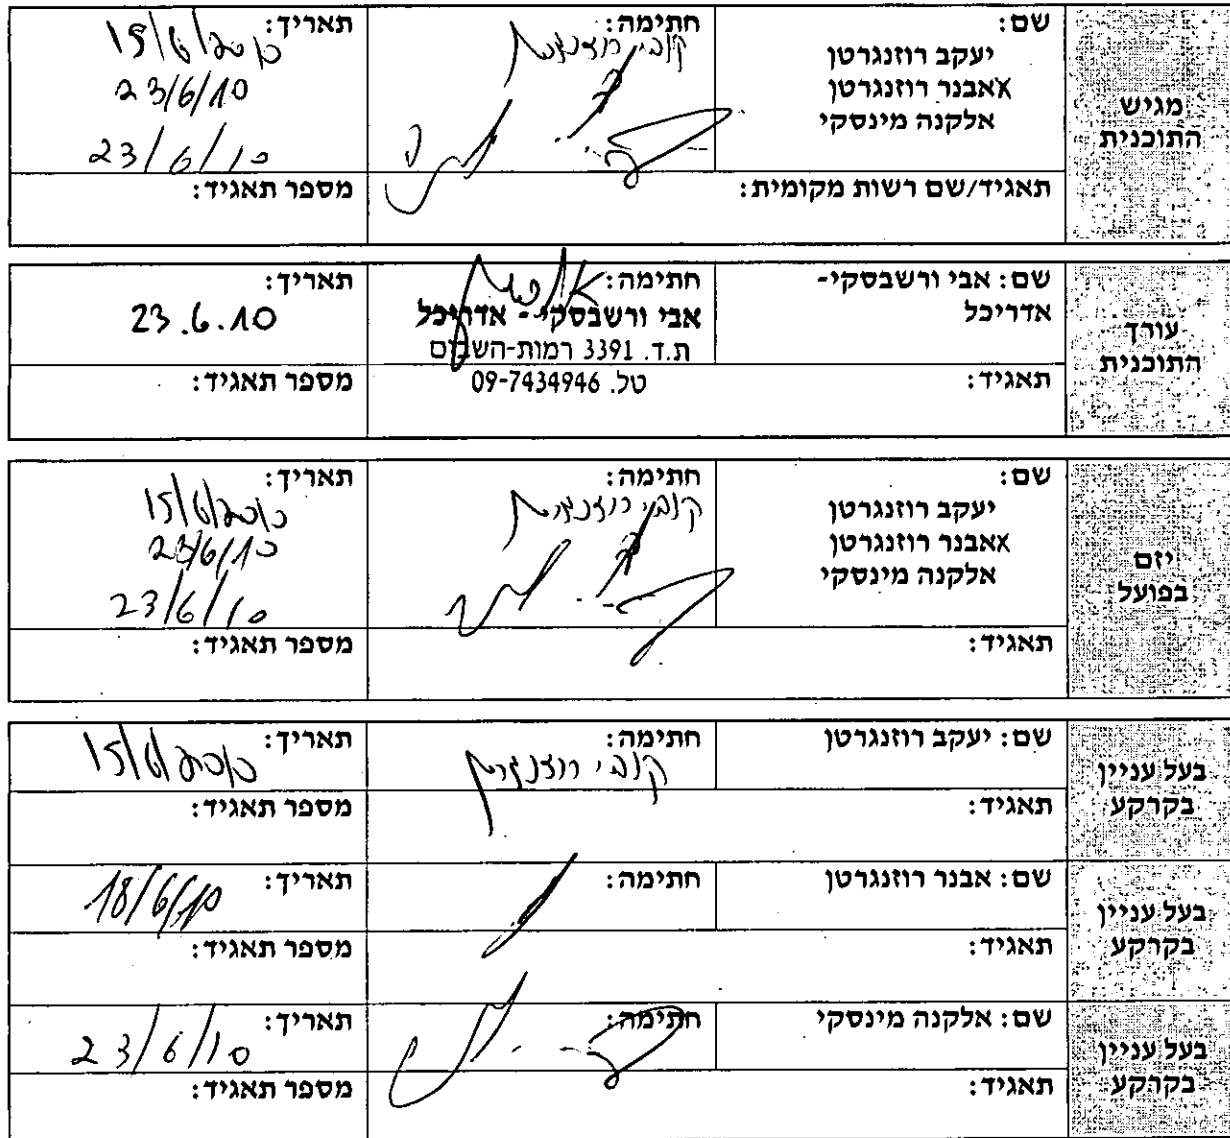 מגיש
התוכנית
שם:
יעקב רוזנגרטן
Xאבנר רוזנגרטן
אלקנה מינסקי
חתימה:
קובי רוזנגרטן
תאריך:
15/6/2010
23/6/10
23/6/10
תאגיד/שם רשות מקומית:
מספר תאגיד:
עורך
התוכנית
שם: אבי ורשבסקי-
אדריכל
חתימה:
אבי ורשבסקי - אדריכל
ת.ד. 3391 רמות-השבים
טל. 09-7434946
תאריך:
23.6.10
תאגיד:
מספר תאגיד:
יזם
בפועל
שם:
יעקב רוזנגרטן
Xאבנר רוזנגרטן
אלקנה מינסקי
חתימה:
קובי רוזנגרטן
תאריך:
15/6/2010
23/6/10
23/6/10
תאגיד:
מספר תאגיד:
בעל עניין
בקרקע
שם: יעקב רוזנגרטן
חתימה:
קובי רוזנגרטן
תאריך: 15/6/2010
תאגיד:
מספר תאגיד:
בעל עניין
בקרקע
שם: אבנר רוזנגרטן
חתימה:
תאריך: 18/6/10
תאגיד:
מספר תאגיד:
בעל עניין
בקרקע
שם: אלקנה מינסקי
חתימה:
תאריך: 23/6/10
תאגיד:
מספר תאגיד: